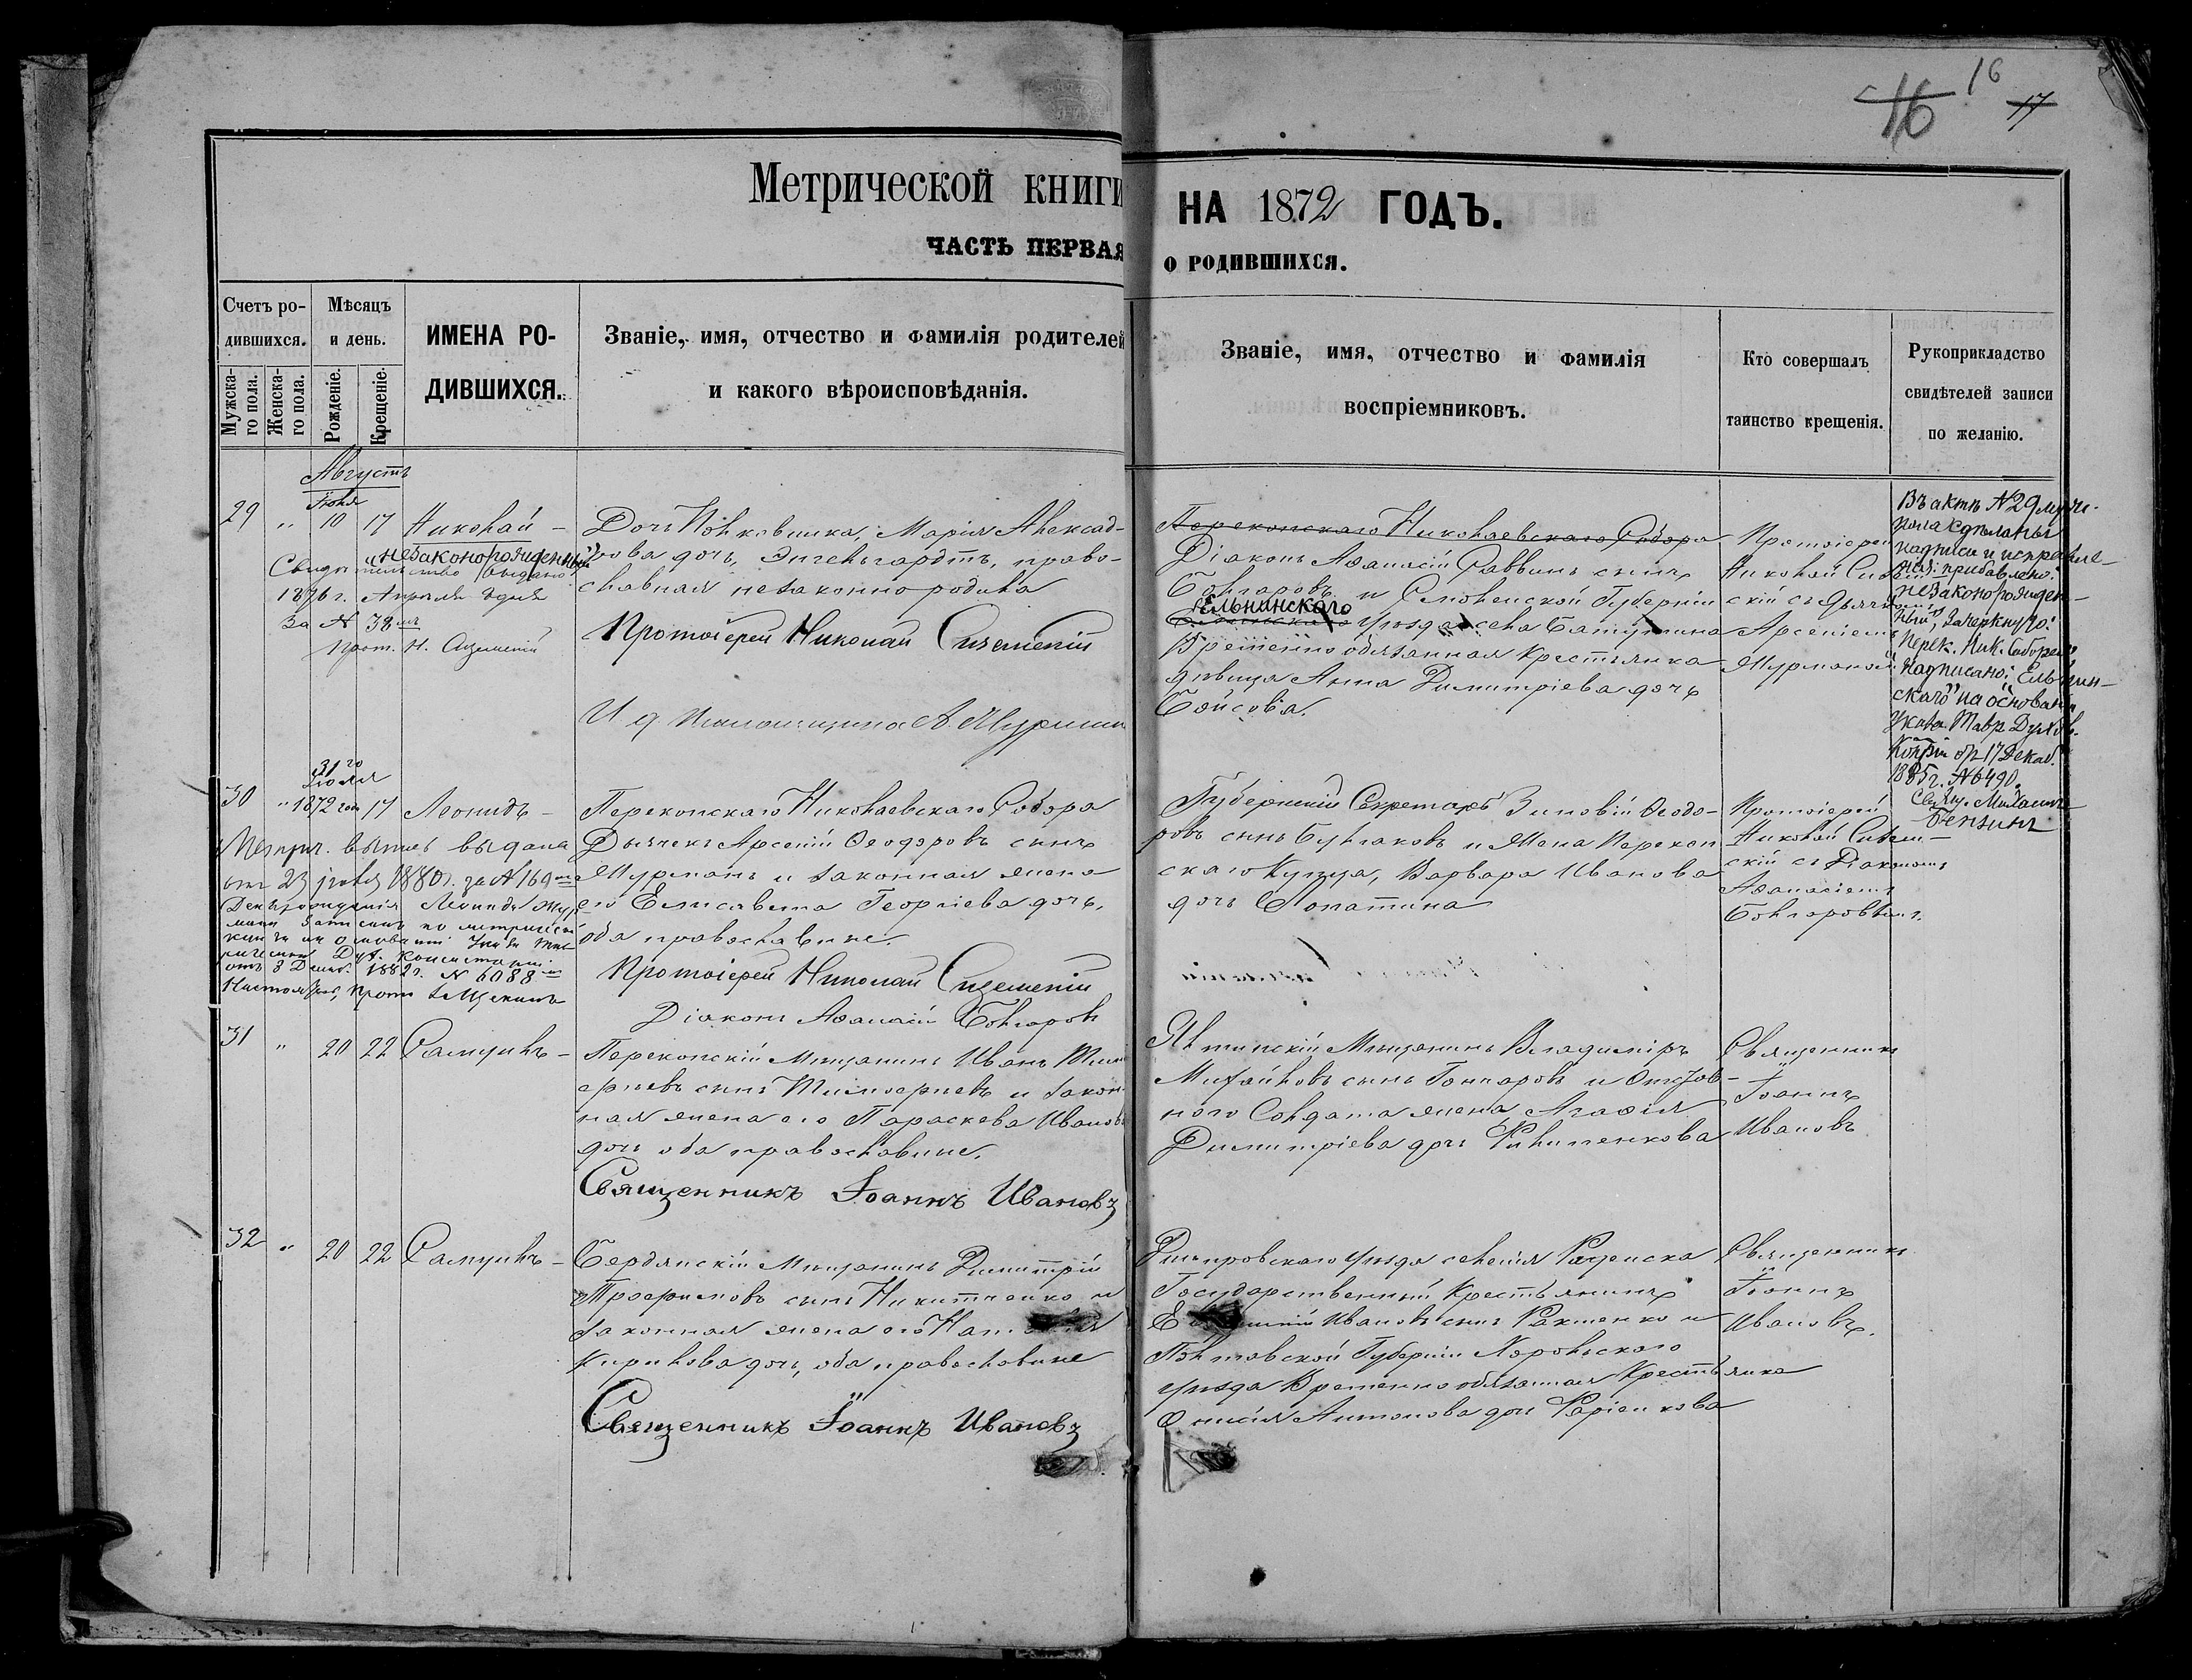 16 16 17
Метрической книги НА 1872 ГОДЪ.
ЧАСТЬ ПЕРВАЯ О РОДИВШИХСЯ.
Счетъ ро-
дившихся.
Мужска-
го пола.
Женска-
го пола.
Мѣсяцъ
и день.
Рожденіе.
Крещеніе.
ИМЕНА РО-
ДИВШИХСЯ.
Званіе, имя, отчество и фамилія родителей
и какого вѣроисповѣданія.
Званіе, имя, отчество и фамилія
воспріемниковъ.
Кто совершалъ
таинство крещенія.
Рукоприкладство
свидѣтелей записи
по желанію.
Августъ
Іюня
29 " 10 17 Николай -
"незаконорожденный"
Свидѣтельство выдано
1876 г. Апрѣля дня
За № 38
Прот. Н.
Дочь Полковника, Марія Алексад-
рова дочь, Энгельгардтъ, право-
славная незаконно родила
Протоіерей Николай
И д А.
Перекопскаго Николаевскаго Собора
Діаконъ Аѳанасій Саввинъ сынъ
Болгаровъ и Смоленской Губерніи
Ельнинскаго
уѣзда села
Временно обязанная Крестьянка
дѣвица Анна Димитріева дочь
Протоіерей
Николай
скій съ Дьячкомъ
Арсеніемъ
Мурманомъ
Въ актѣ № 29 муж.
пола сдѣланы
надписи и исправле-
нія: прибавлено:
"незаконорожден-
ный", зачеркнуто:
"Перек. Ник. Собора"
надписано: "Ельнин-
скаго" на основаніи
Указа Тавр. Духов.
Конс. отъ 17 Декаб.
1885 г. № 6490.
Свящ. Михаилъ
31го
Іюля
30 " 1872 года 17 Леонидъ -
Метрич. выпись выдана
отъ 23 1880 г. за № 169
День рожденія Леонида Мур-
мана записанъ по метрической
книгѣ на основаніи Указа Тав-
рической Дух. Консисторіи
отъ 8 Декаб. 188 г. № 6088
Настоят., прот.
Перекопскаго Николаевскаго Собора
Дьячекъ Арсеній Ѳеодоровъ сынъ
Мурманъ и законная жена
его Елисавета Георгіева дочь,
оба православные.
Протоіерей Николай
Діаконъ Аѳанасій Болгаровъ
Губернскій Секретарь Зиновій Ѳеодо-
ровъ сынъ Булгаковъ и Жена Перекоп
скаго Купца, Варвара Иванова
дочь Лопатина
Протоіерей
Николай
скій съ Діакономъ
Аѳанасіемъ
Болгаровымъ.
31 " 20 22 Самуилъ -
Перекопскій Мѣщанинъ Иванъ Тим
ѳѣевъ сынъ Тимоѳѣевъ и закон
ная жена его Параскева Иванов
дочь оба православные.
Священникъ Іоаннъ Ивановъ
Ялтинскій Мѣщанинъ Владиміръ
Михайловъ сынъ Гончаровъ и
ного Солдата жена Агаѳія
Димитріева дочь Филипенкова
Священникъ
Іоаннъ
Ивановъ
32 " 20 22 Самуилъ -
Бердянскій Мѣщанинъ Димитрій
Трофимовъ сынъ Никитченко и
законная жена его
Кирилова дочь, оба православные
Священникъ Іоаннъ Ивановъ
Днѣпровскаго уѣзда селенія
Государственный Крестьянинъ
Ивановъ сынъ и
Полтавской Губерніи Хорольскаго
уѣзда Временно обязанная Крестьянка
Антонова дочь
Священникъ
Іоаннъ
Ивановъ.